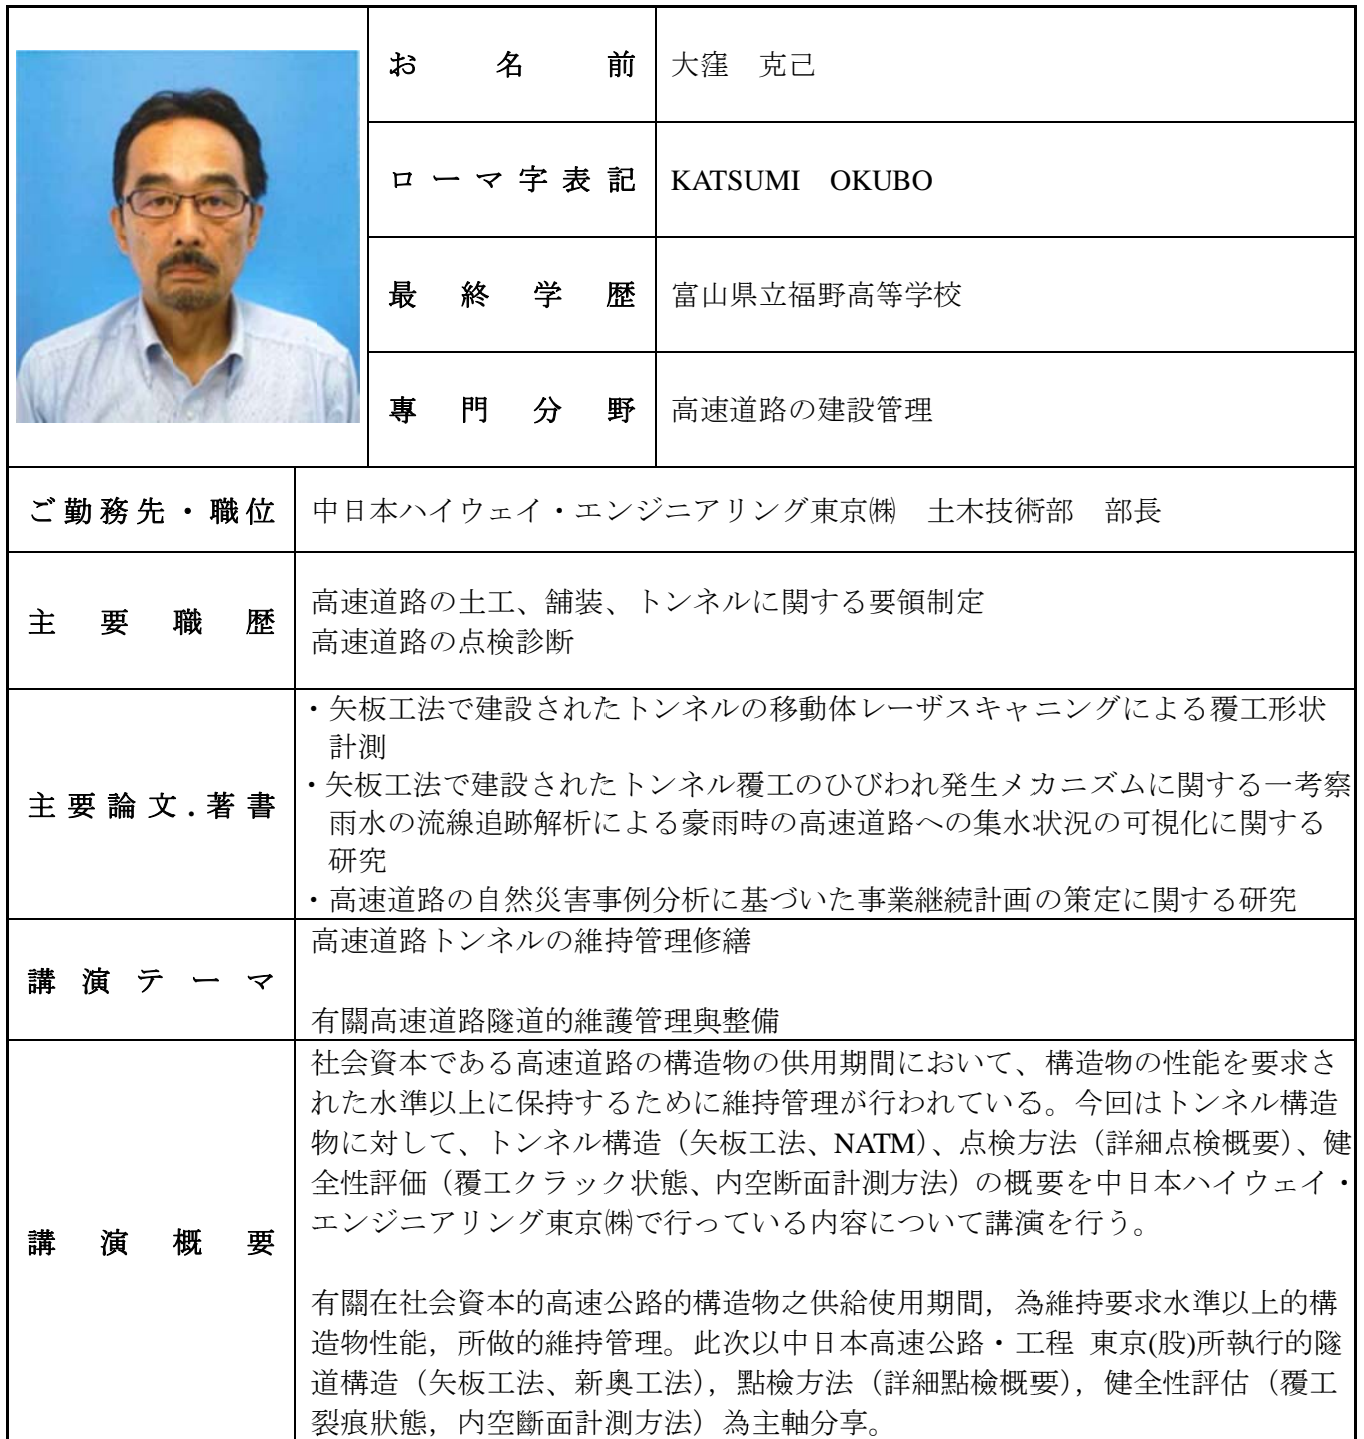 お名前 大窪　克己
ローマ字表記 KATSUMI　OKUBO
最終学歴 富山県立福野高等学校
専門分野 高速道路の建設管理
ご勤務先・職位 中日本ハイウェイ・エンジニアリング東京㈱　土木技術部　部長
主要職歴
高速道路の土工、舗装、トンネルに関する要領制定
高速道路の点検診断
主要論文.著書
・矢板工法で建設されたトンネルの移動体レーザスキャニングによる覆工形状
計測
・矢板工法で建設されたトンネル覆工のひびわれ発生メカニズムに関する一考察
雨水の流線追跡解析による豪雨時の高速道路への集水状況の可視化に関する
研究
・高速道路の自然災害事例分析に基づいた事業継続計画の策定に関する研究
講演テーマ
高速道路トンネルの維持管理修繕
有關高速道路隧道的維護管理與整備
講演概要
社会資本である高速道路の構造物の供用期間において、構造物の性能を要求さ
れた水準以上に保持するために維持管理が行われている。今回はトンネル構造
物に対して、トンネル構造（矢板工法、NATM）、点検方法（詳細点検概要）、健
全性評価（覆工クラック状態、内空断面計測方法）の概要を中日本ハイウェイ・
エンジニアリング東京㈱で行っている内容について講演を行う。
有關在社会資本的高速公路的構造物之供給使用期間，為維持要求水準以上的構
造物性能，所做的維持管理。此次以中日本高速公路・工程 東京(股)所執行的隧
道構造（矢板工法、新奧工法），點檢方法（詳細點檢概要），健全性評估（覆工
裂痕狀態，内空斷面計測方法）為主軸分享。